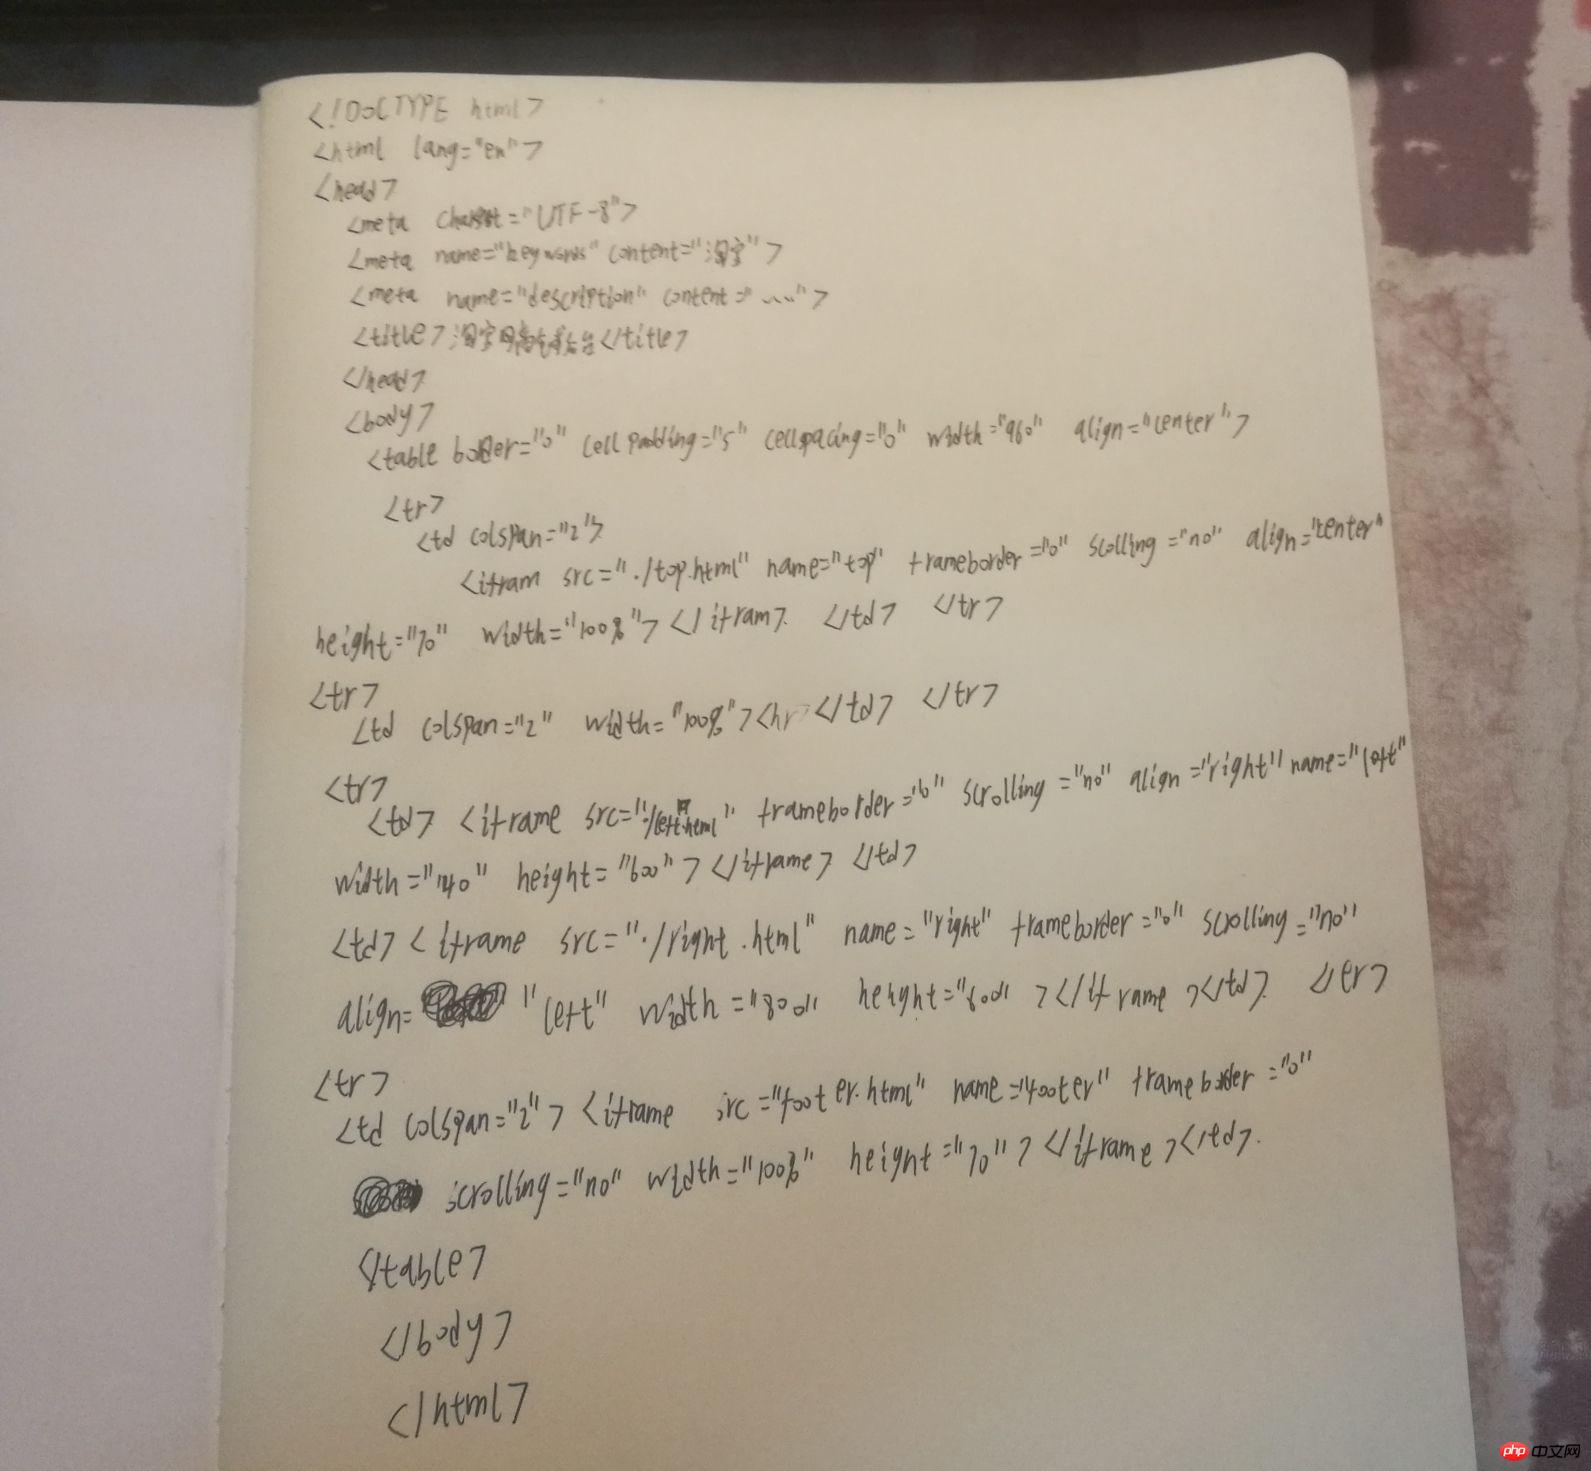 <!DOCTYPE html>
<html lang="en">
<head>
<meta charset="UTF-8">
<meta name="keywords" content="淘宝">
<meta name="description" content="....">
<title>淘宝网后台</title>
</head>
<body>
<table border="0" cellpadding="5" cellspacing="0" width="960" align="center">
<tr>
<td colspan="2">
<ifram src="./top.html" name="top" frameborder="0" scolling="no" align="center"
height="70" width="100%"></ifram> </td> </tr>
<tr>
<td colspan="2" width="100%"><hr></td> </tr>
<tr>
<td> <iframe src="./left.html" frameborder="0" scrolling="no" align="right" name="left"
width="140" height="600"></iframe> </td>
<td><iframe src="./right.html" name="right" frameborder="0" scrolling="no"
align= "left" width="800" height="600"></iframe></td> </tr>
<tr>
<td colspan="2"> <iframe src="footer.html" name="footer" frameborder="0"
scrolling="no" width="100%" height="70"></iframe></td>
</table>
</body>
</html>
php 中文网